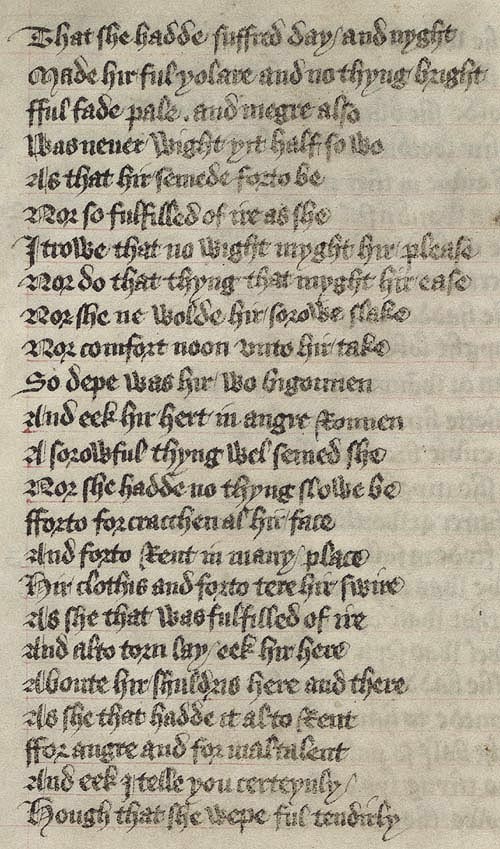 That she hadde suffred day / and nyght
Made hir ful yolare and no thyng bright
fful fade pale . and megre also
Was neuer wight yit half so wo
As that hir semede forto be
Nor so fulfilled of ire as she
I trowe that no wight myght hir please
Nor do that thyng that myght hir ease
Nor she ne wolde hir sorowe slake
Nor comfort noon vnto hir take
So depe was hir wo bigonnen
And eek hir hert in angre Ronnen
A sorowful thyng wel semed she
Nor she hadde no thyng slowe be
fforto forcracchen al hir face
And forto Rent in many / place
Hir clothis and forto tere hir swire
As she that was fulfilled of ire
And al to torn lay / eek hir here
Aboute hir shuldris here and there
As she that hadde it al to Rent
ffor angre and for maltalent
And eek I telle you certeynly /
Hough that she wepe ful tendirly